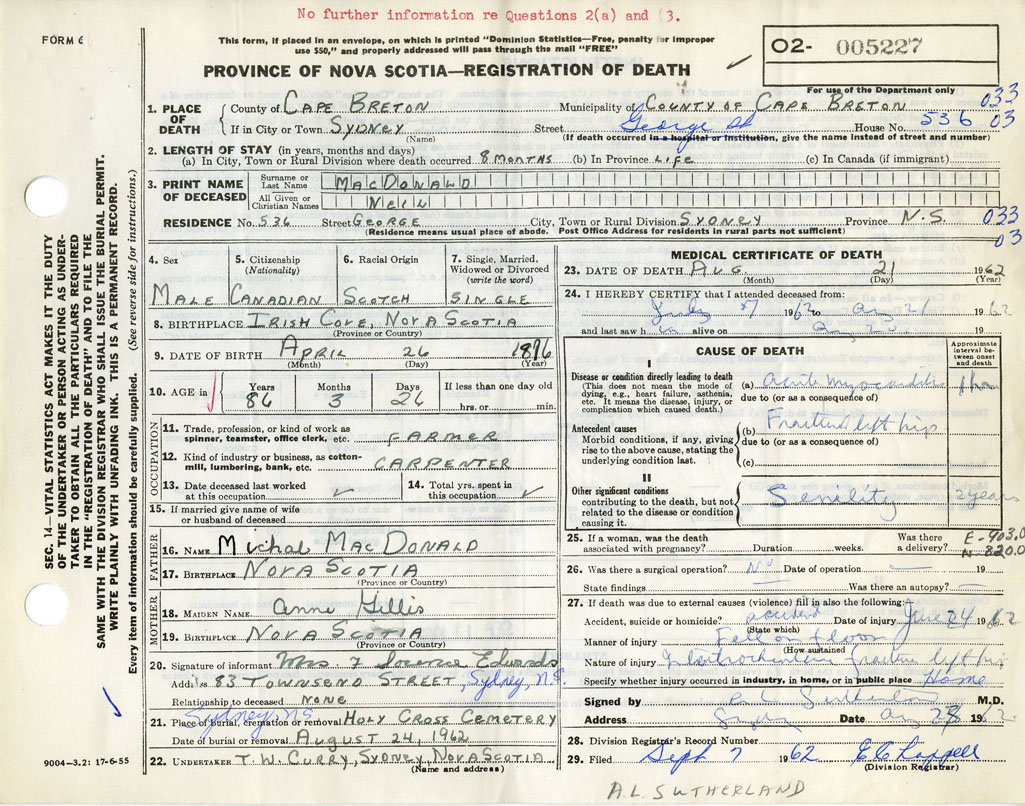 No further information re Questions 2(a) and 3.
FORM 6
This form, if placed in an envelope, on which is printed "Dominion Statistics—Free, penalty for improper
use $50," and properly addressed will pass through the mail "FREE"
PROVINCE OF NOVA SCOTIA—REGISTRATION OF DEATH
02- 005227
For use of the Department only
1. PLACE OF DEATH County of CAPE BRETON Municipality of COUNTY OF CAPE BRETON 033
If in City or Town SYDNEY Street George St House No. 536 03
(Name) (If death occurred in a hospital or institution, give the name instead of street and number)
2. LENGTH OF STAY (in years, months and days)
(a) In City, Town or Rural Division where death occurred 8 MONTHS (b) In Province LIFE (c) In Canada (if immigrant)
3. PRINT NAME OF DECEASED Surname or Last Name MACDONALD
All Given or Christian Names NEIL
RESIDENCE No. 536 Street GEORGE City, Town or Rural Division SYDNEY Province N.S. 033
(Residence means usual place of abode. Post Office Address for residents in rural parts not sufficient) 03
SEC. 14—VITAL STATISTICS ACT MAKES IT THE DUTY
OF THE UNDERTAKER OR PERSON ACTING AS UNDER-
TAKER TO OBTAIN ALL THE PARTICULARS REQUIRED
IN THE "REGISTRATION OF DEATH" AND TO FILE THE
SAME WITH THE DIVISION REGISTRAR WHO SHALL ISSUE THE BURIAL PERMIT.
WRITE PLAINLY WITH UNFADING INK. THIS IS A PERMANENT RECORD.
Every item of information should be carefully supplied. (See reverse side for instructions.)
4. Sex 5. Citizenship (Nationality) 6. Racial Origin 7. Single, Married, Widowed or Divorced (write the word)
MALE CANADIAN SCOTCH SINGLE
8. BIRTHPLACE IRISH COVE, NOVA SCOTIA
(Province or Country)
9. DATE OF BIRTH APRIL 26 1876
(Month) (Day) (Year)
10. AGE in Years Months Days If less than one day old
86 3 26 hrs. or min.
OCCUPATION
11. Trade, profession, or kind of work as
spinner, teamster, office clerk, etc. FARMER
12. Kind of industry or business, as cotton-
mill, lumbering, bank, etc. CARPENTER
13. Date deceased last worked at this occupation ✓ 14. Total yrs. spent in this occupation ✓
15. If married give name of wife
or husband of deceased
FATHER
16. NAME Michal MACDONALD
17. BIRTHPLACE NOVA SCOTIA
(Province or Country)
MOTHER
18. MAIDEN NAME Anne Gillis
19. BIRTHPLACE NOVA SCOTIA
(Province or Country)
20. Signature of informant Mrs Edwards
Address 83 TOWNSEND STREET, Sydney, N.S.
Relationship to deceased NONE
Sydney, N.S.
21. Place of burial, cremation or removal HOLY CROSS CEMETERY
Date of burial or removal AUGUST 24, 1962
22. UNDERTAKER T. W. CURRY, SYDNEY, NOVA SCOTIA
(Name and address)
9004-3.2: 17-6-55
MEDICAL CERTIFICATE OF DEATH
23. DATE OF DEATH AUG. 21 1962
(Month) (Day) (Year)
24. I HEREBY CERTIFY that I attended deceased from:
July 1962 to Aug 21 1962
and last saw h alive on Aug 19
CAUSE OF DEATH
Approximate interval between onset and death
I
Disease or condition directly leading to death
(This does not mean the mode of
dying, e.g., heart failure, asthenia,
etc. It means the disease, injury, or
complication which caused death.)
(a) acute myocarditis 1 hour
due to (or as a consequence of)
Antecedent causes
Morbid conditions, if any, giving
rise to the above cause, stating the
underlying condition last.
(b) Fractured left hip
due to (or as a consequence of)
(c)
II
Other significant conditions
contributing to the death, but not
related to the disease or condition
causing it.
Senility 2 years
25. If a woman, was the death
associated with pregnancy? Duration weeks. Was there a delivery?
E-903.0
N-820.0
26. Was there a surgical operation? No Date of operation — 19
State findings Was there an autopsy? —
27. If death was due to external causes (violence) fill in also the following:
Accident, suicide or homicide? accident Date of injury June 24 1962
(State which)
Manner of injury Fell on floor
(How sustained
Nature of injury Intertrochanteric fracture left hip
Specify whether injury occurred in industry, in home, or in public place Home
Signed by A L Sutherland M.D.
Address Sydney Date Aug 28 1962
28. Division Registrar's Record Number
29. Filed Sept 7 1962
(Division Registrar)
A.L. SUTHERLAND